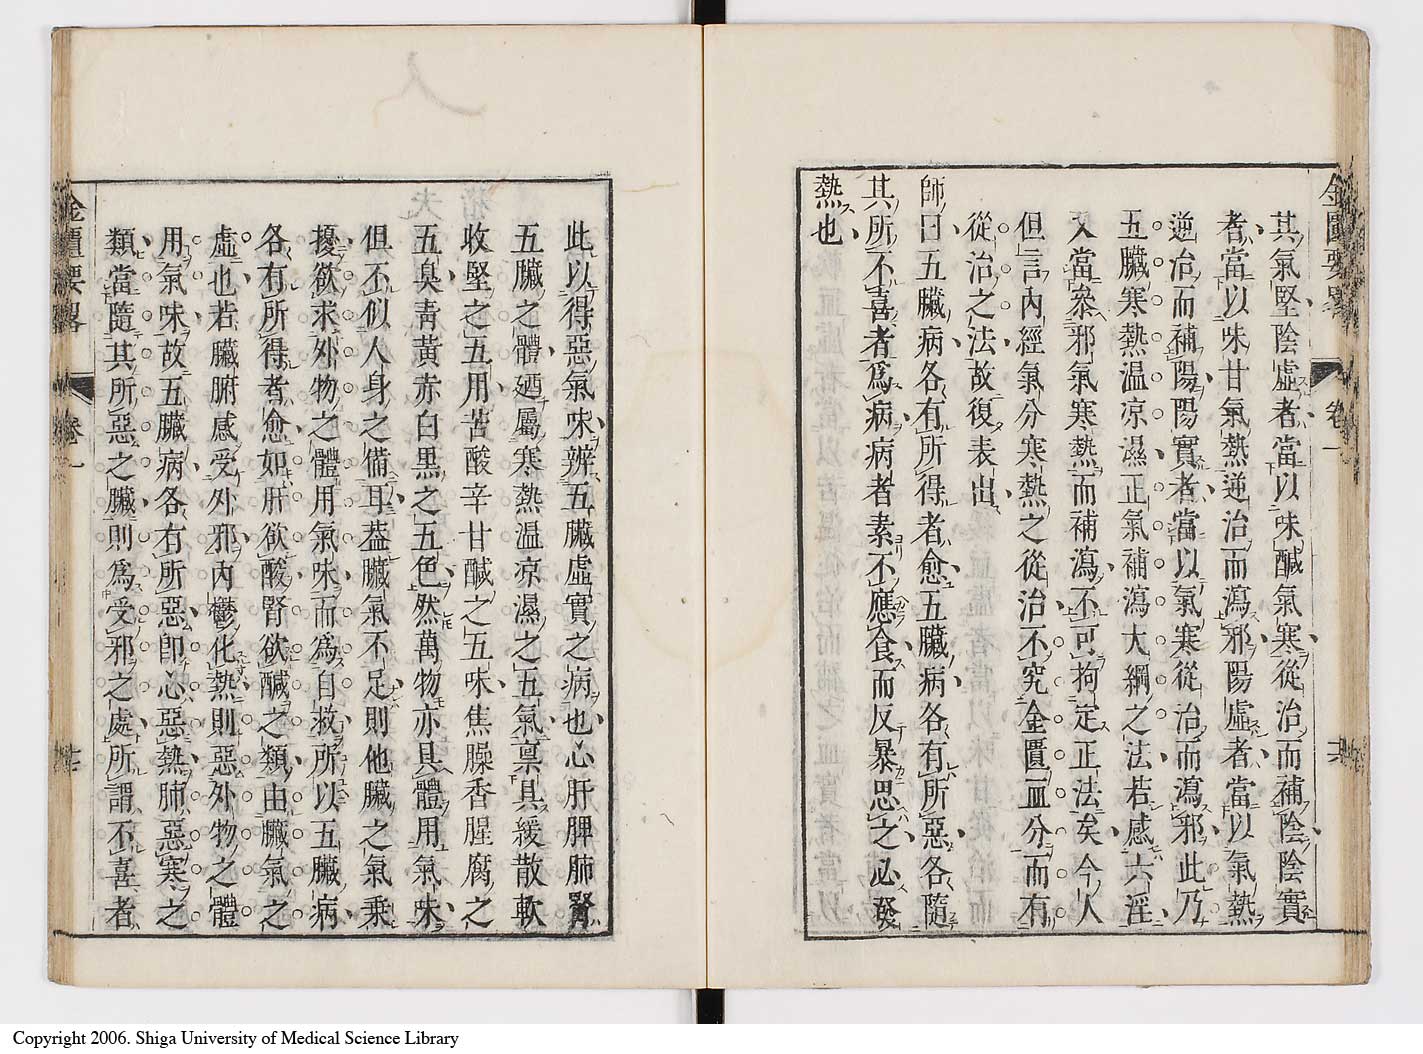 金匱要畧 卷一 十六
其氣堅陰虛者當以味醎氣寒從治而補陰陰實
者當以味甘氣熱逆治而瀉邪陽虛者當以氣熱
逆治而補陽陽實者當以氣寒從治而瀉邪此乃
五臟寒熱温凉濕正氣補瀉大綱之法若感六淫
又當叅邪氣寒熱而補瀉不可拘定正法矣今人
但言內經氣分寒熱之從治不究金匱血分而有
從治之法故復表出
師曰五臟病各有所得者愈五臟病各有所惡各隨
其所不喜者爲病病者素不應食而反暴思之必發
熱也
此以得惡氣味辨五臟虛實之病也心肝脾肺腎
五臟之體廼屬寒熱温凉濕之五氣稟具緩散軟
收堅之五用苦酸辛甘醎之五味焦臊香腥腐之
五臭青黃赤白黑之五色然萬物亦具體用氣味
但不似人身之備耳葢臟氣不足則他臟之氣乘
擾欲求外物之體用氣味而爲自救所以五臟病
各有所得者愈如肝欲酸腎欲醎之類由臟氣之
虛也若臟腑感受外邪內鬱化熱則惡外物之體
用氣味故五臟病各有所惡卽心惡熱肺惡寒之
類當隨其所惡之臟則爲受邪之處所謂不喜者
金匱要畧 卷一
Copyright 2006. Shiga University of Medical Science Library